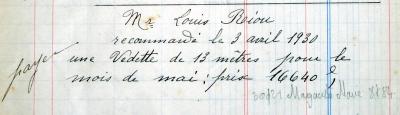 Mr Louis Réou
recommandé le 3 avril 1930
payé une Vedette de 13 mètres pour le
mois de mai : prix 16640